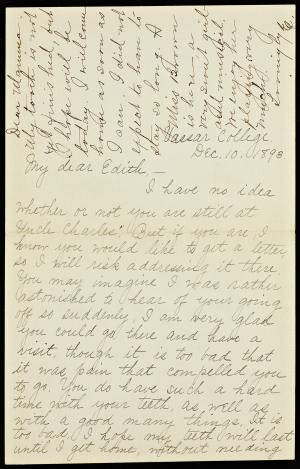 Vassar College.
Dec. 10, 1893.
My dear Edith,—
I have no idea
whether or not you are still at
Uncle Charles'. But if you are, I
know you would like to get a letter,
so I will risk addressing it there.
You may imagine I was rather
astonished to hear of your going
off so suddenly. I am very glad
you could go there and have a
visit, though it is too bad that
it was pain that compelled you
to go. You do have such a hard
time with your teeth, as well as
with a good many things. It is
too bad. I hope my teeth will last
until I get home, without needing
Dear Mamma:
My tooth is not
finished, but
I hope will be
today. I will come
home as soon as
I can. I did not
expect to have to
stay so long. A
Miss Brown
is here, a
very sweet girl
and musical.
We enjoy her
playing very
much.
Lovingly,